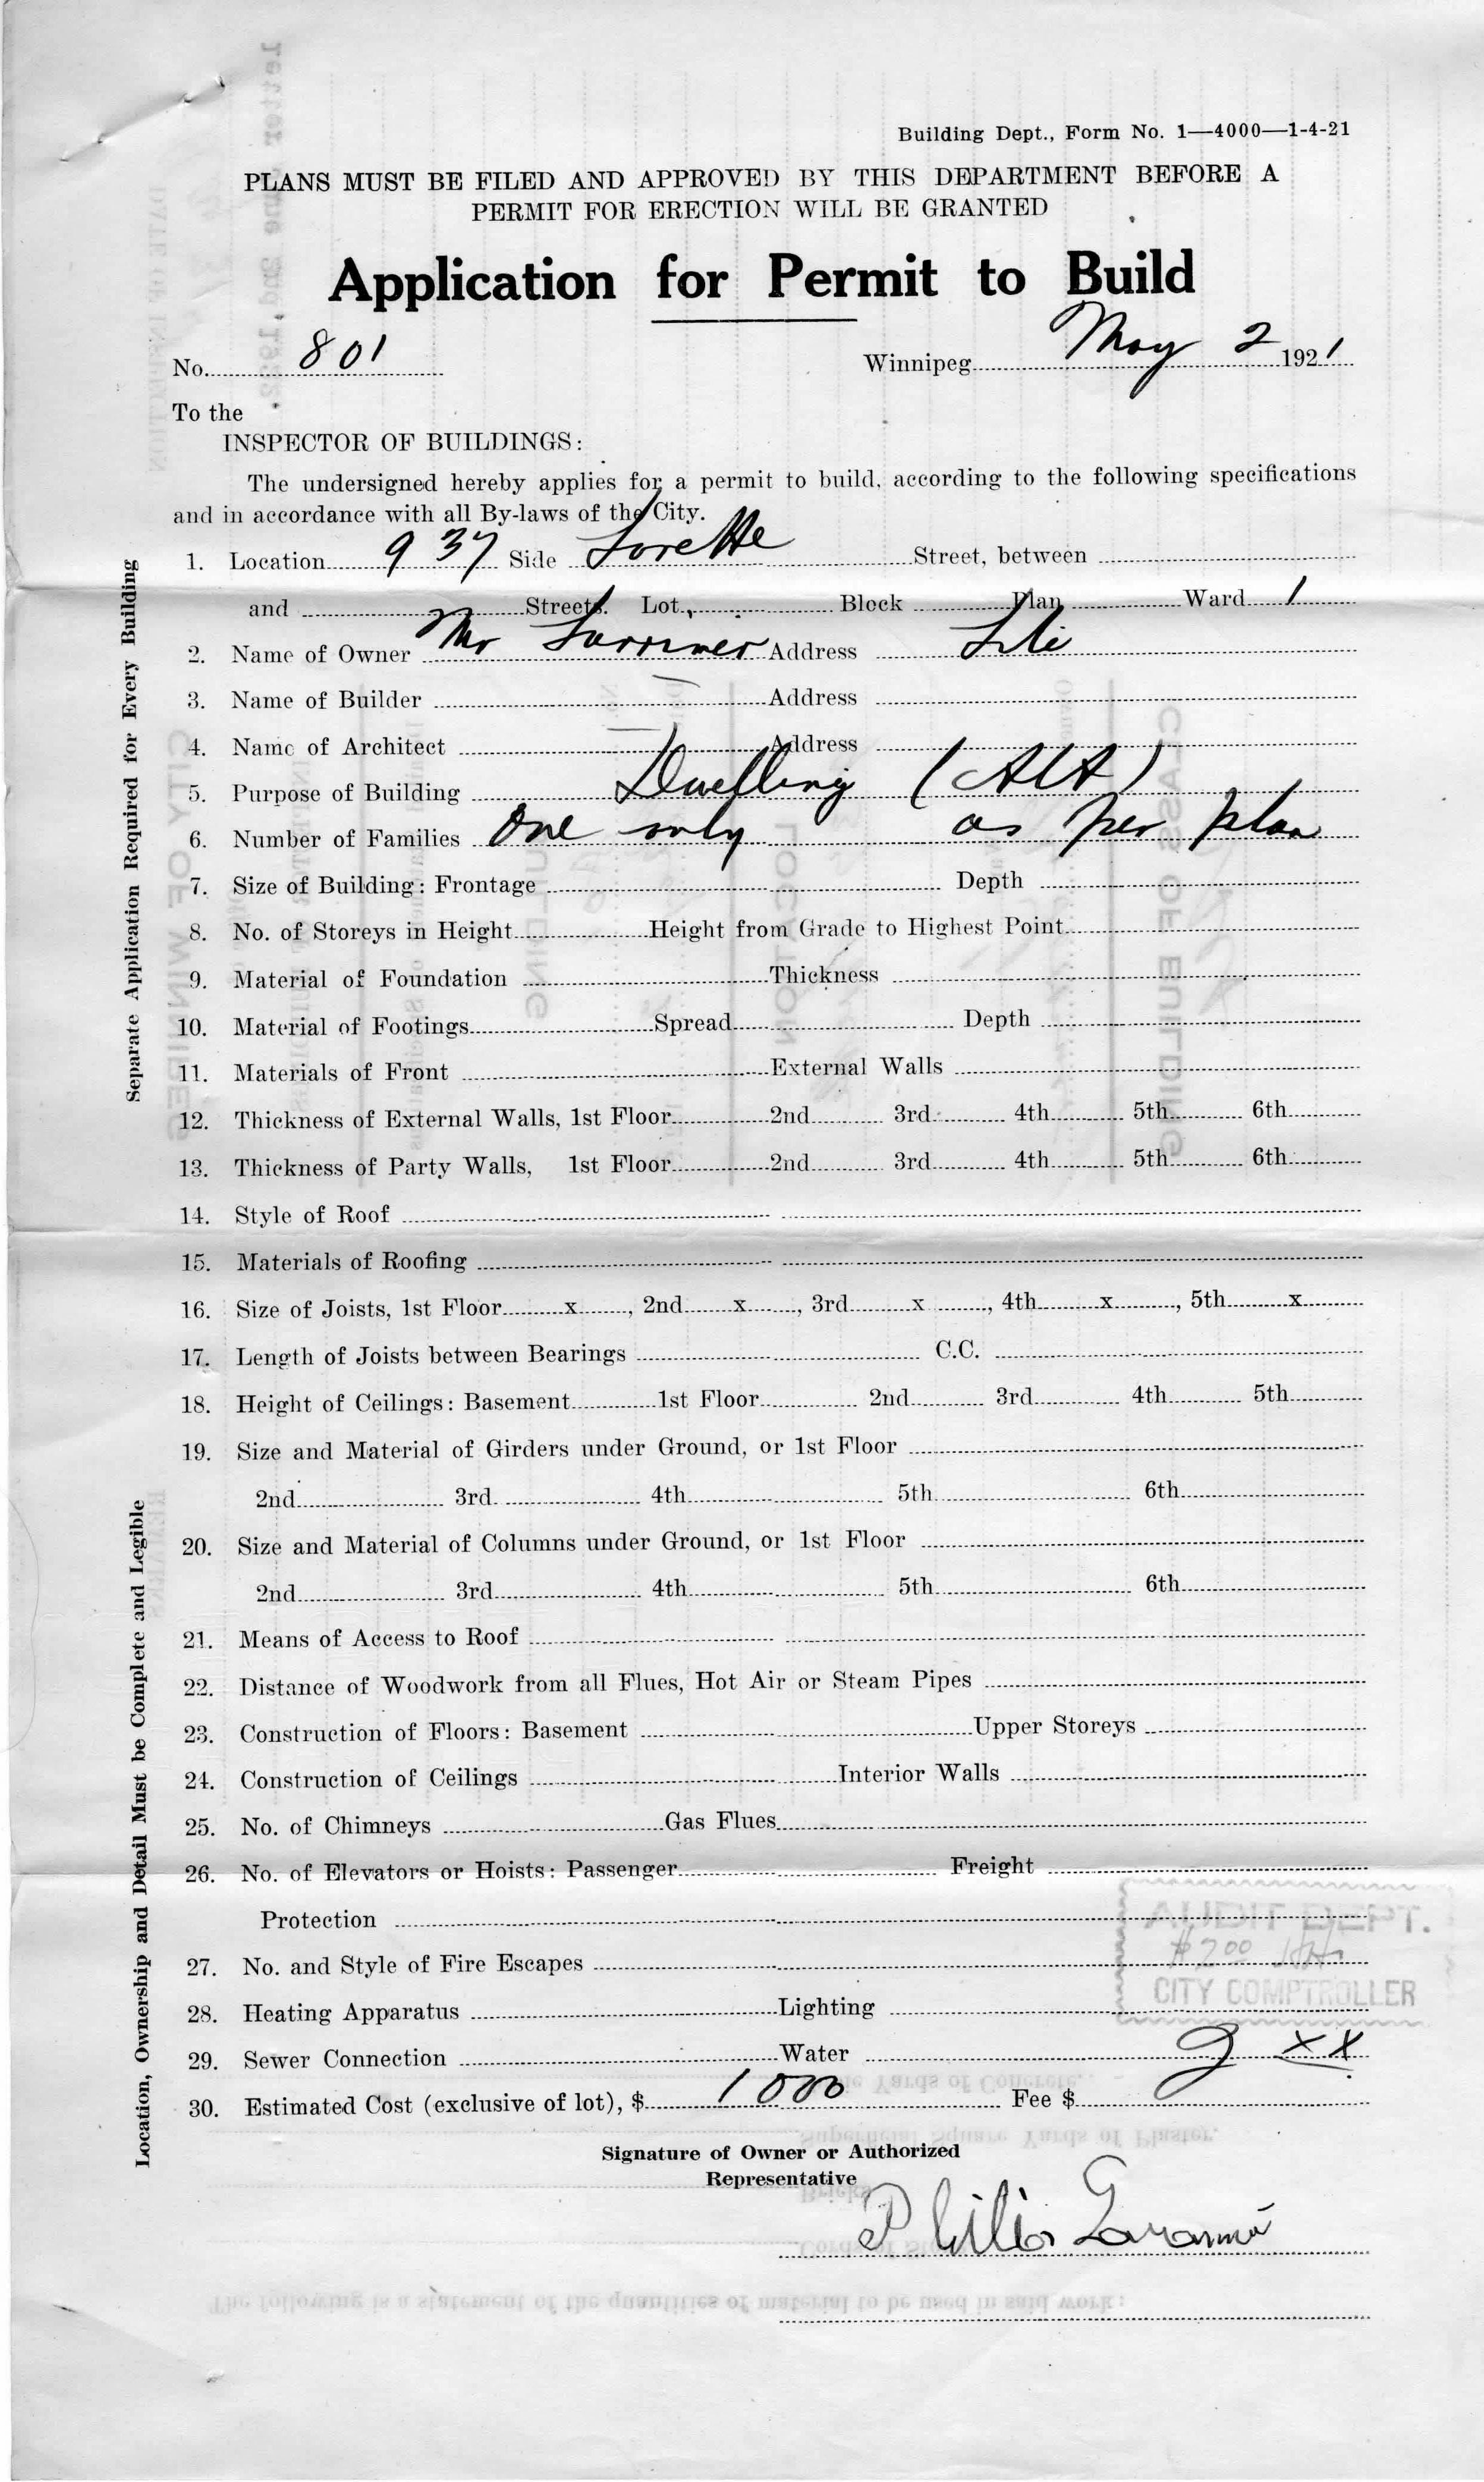 Building Dept., Form No. 1—4000—1-4-21
PLANS MUST BE FILED AND APPROVED BY THIS DEPARTMENT BEFORE A
PERMIT FOR ERECTION WILL BE GRANTED
Application for Permit to Build
No. 801 Winnipeg May 2 1921
To the
INSPECTOR OF BUILDINGS:
The undersigned hereby applies for a permit to build, according to the following specifications
and in accordance with all By-laws of the City.
1. Location 937 Side Lorette Street, between
and Streets. Lot, Block Plan Ward 1
2. Name of Owner Mr Address
3. Name of Builder — Address
4. Name of Architect — Address
5. Purpose of Building Dwelling (Alt)
6. Number of Families One only as per plan
7. Size of Building: Frontage Depth
8. No. of Storeys in Height Height from Grade to Highest Point
9. Material of Foundation Thickness
10. Material of Footings Spread Depth
11. Materials of Front External Walls
12. Thickness of External Walls, 1st Floor 2nd 3rd 4th 5th 6th
13. Thickness of Party Walls, 1st Floor 2nd 3rd 4th 5th 6th
14. Style of Roof
15. Materials of Roofing
16. Size of Joists, 1st Floor x , 2nd x , 3rd x , 4th x , 5th x
17. Length of Joists between Bearings C.C.
18. Height of Ceilings: Basement 1st Floor 2nd 3rd 4th 5th
19. Size and Material of Girders under Ground, or 1st Floor
2nd 3rd 4th 5th 6th
20. Size and Material of Columns under Ground, or 1st Floor
2nd 3rd 4th 5th 6th
21. Means of Access to Roof
22. Distance of Woodwork from all Flues, Hot Air or Steam Pipes
23. Construction of Floors: Basement Upper Storeys
24. Construction of Ceilings Interior Walls
25. No. of Chimneys Gas Flues
26. No. of Elevators or Hoists: Passenger Freight
Protection
AUDIT DEPT.
$2.00
CITY COMPTROLLER
27. No. and Style of Fire Escapes
28. Heating Apparatus Lighting
29. Sewer Connection Water
30. Estimated Cost (exclusive of lot), $ 1000 Fee $ 2 xx
Signature of Owner or Authorized
Representative
Separate Application Required for Every Building
Location, Ownership and Detail Must be Complete and Legible